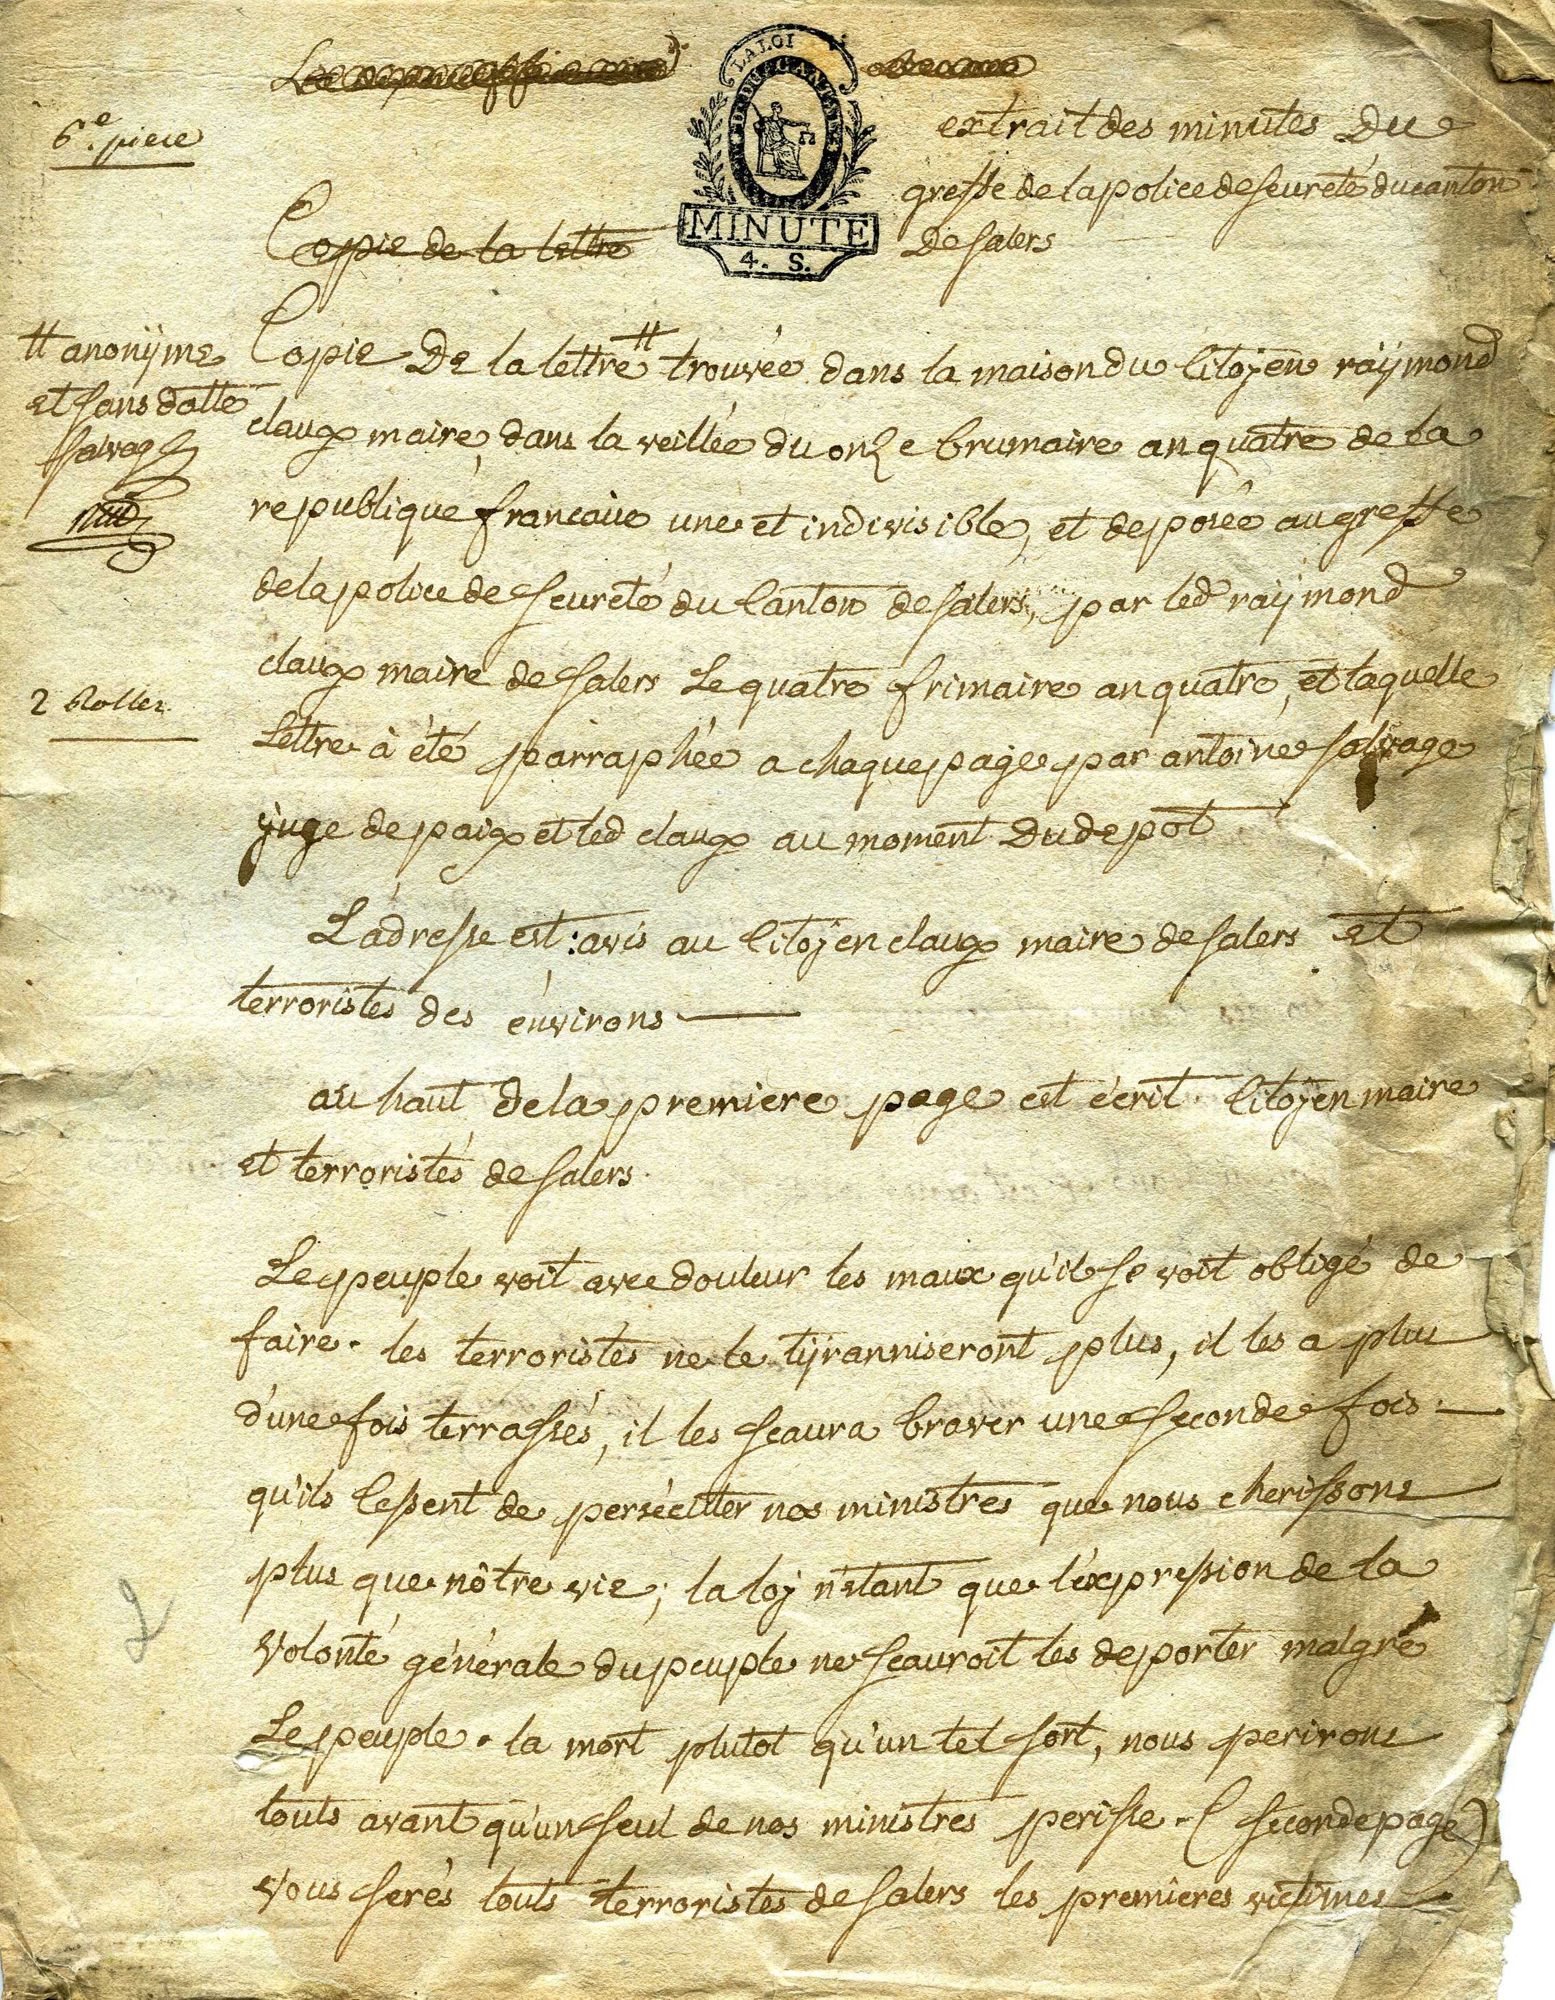 6.e piece
LA LOI
DU CANTAL
MINUTE
4. S.
extrait des minutes du
greffe de la police de seureté du canton
de salers
Copie de la lettre
# anonÿme
et sans datte
Copie de la lettre # trouvée dans la maison du Citoÿen raÿmond
claux maire, dans la veillée du onze brumaire an quatre de la
republique francaise une et indivisible, et deposée au greffe
de la police de seureté du Canton de salers, par led raÿmond
claux maire de salers Le quatre frimaire an quatre, et laquelle
Lettre à été parraphée a chaque page par antoine salvage
juge de paix et led claux au moment du depot
2 Rolles
L'adresse est : avis au Citoÿen claux maire de salers et
terroristes des environs
au haut de la premiere page est écrit. Citoÿen maire
et terroristes de salers.
Le peuple voit avec douleur les maux qu'il se voit obligé de
faire. les terroristes ne le tÿranniseront plus, il les a plus
d'une fois terrassés, il les scaura braver une seconde fois
qu'ils cessent de persécuter nos ministres que nous cherissons
plus que nôtre vie ; la loj n'etant que l'expression de la
volonté générale du peuple ne scauroit les deporter malgré
Le peuple. la mort plutot qu'un tel sort, nous perirons
touts avant qu'un seul de nos ministres perisse. (seconde page)
vous serés touts terroristes de salers les premières victimes
2